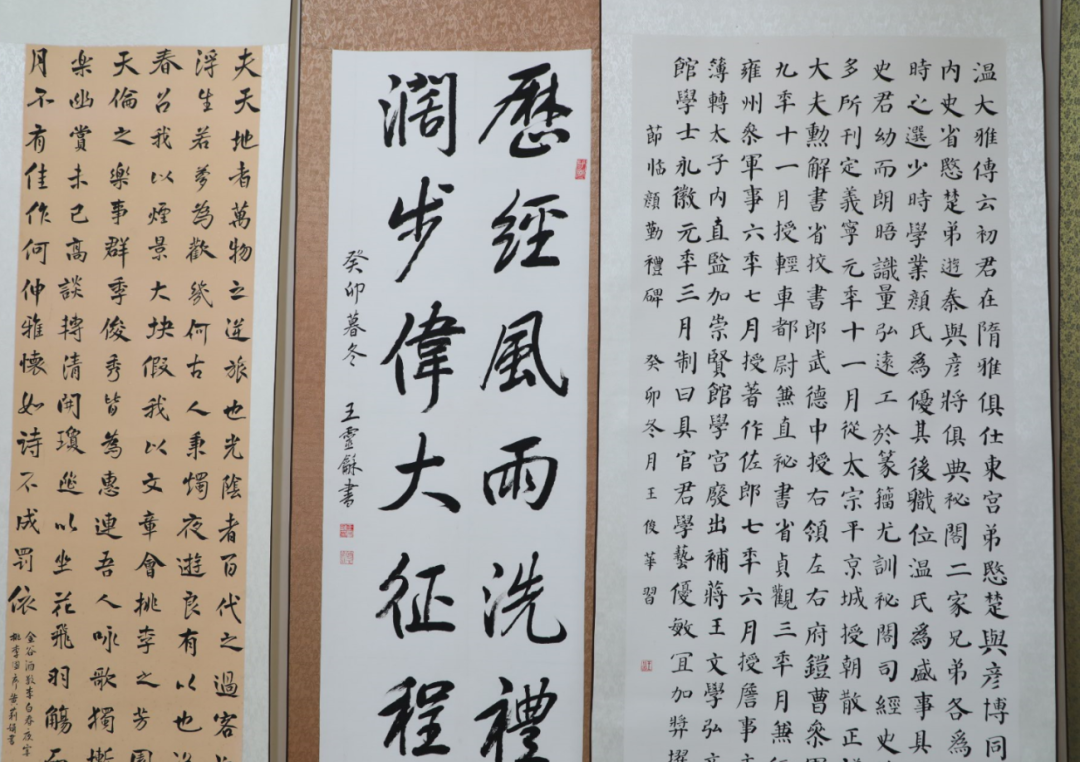 温大雅傳云初君在隋雅俱仕東宮弟愍楚與彦博同
内史省愍楚弟遊秦與彦將俱典祕閣二家兄弟各爲
時之選少時學業顏氏爲優其後職位温氏爲盛事具
史君幼而朗晤識量弘遠工於篆籀尤訓祕閣司經史
多所刊定義寧元年十一月從太宗平京城授朝散正議
大夫勳解書省挍書郎武德中授右領左右府鎧曹叅
九年十一月授輕車都尉兼直祕書省貞觀三年月兼
雍州叅軍事六年七月授著作佐郎七年六月授詹事
薄轉太子内直監加崇賢館學宮廢出補蒋王文學弘
館學士永徽元年三月制曰具官君學藝優敏宜加奨擢
節临顏勤禮碑 癸卯冬月王俊華習
歷經風雨洗禮
闊步偉大征程
癸卯暮冬 王靈龢書
夫天地者萬物之逆旅也光陰者百代之過客
浮生若夢為歡幾何古人秉燭夜遊良有以也
春召我以煙景大块假我以文章會桃李之芳園
天倫之樂事群季俊秀皆為惠連吾人咏歌獨慚
樂幽賞未已高談轉清開瓊筵以坐花飛羽觴而
月不有佳作何伸雅懷如詩不成罰依
金谷酒數李白春夜宴